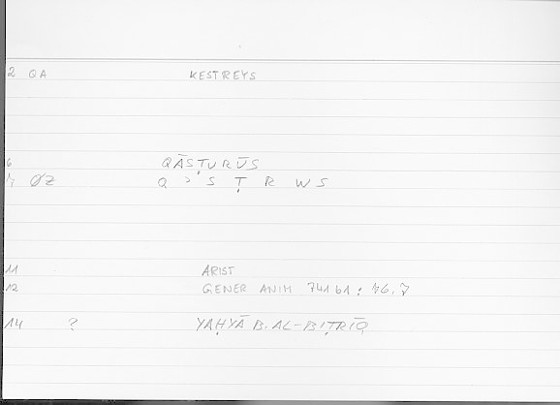 2 QA KESTREYS
6 QĀṢṬURŪS
7 ØZ Q ʾ S Ṭ R W S
11 ARIST
12 GENER ANIM 741 b1 : 76.7
14 ? YAḤYĀ B. AL-BIṬRĪQ